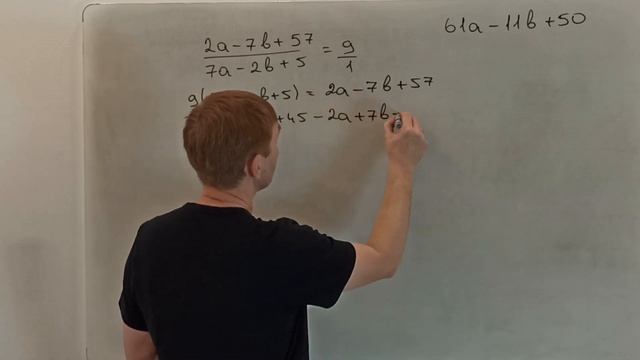 61a - 11b + 50
2a - 7b + 57
7a - 2b + 5
= 9
1
9( b + 5) = 2a - 7b + 57
+ 45 - 2a + 7b -